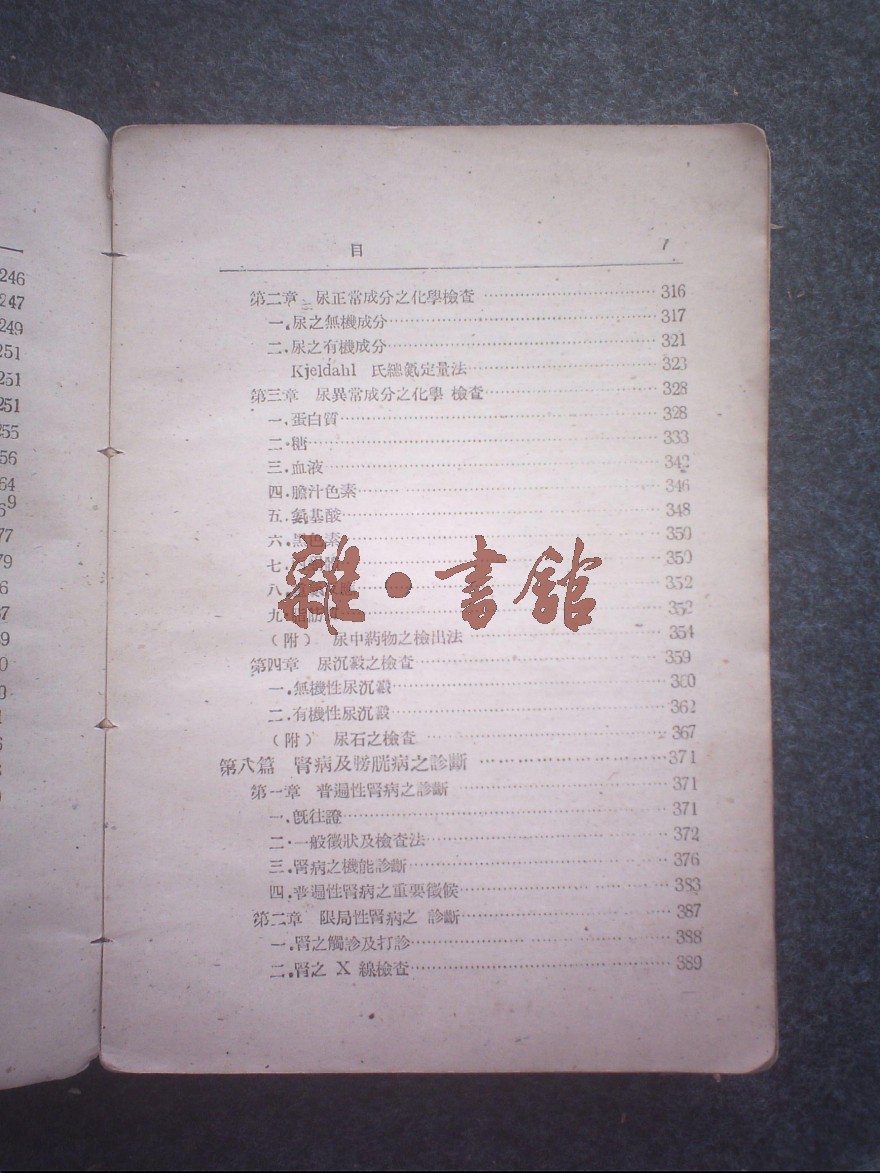 246
247
249
251
251
251
255
56
64
9
77
79
6
67
39
目 7
第二章 尿正常成分之化學檢查 316
一.尿之無機成分 317
二.尿之有機成分 321
Kjeldahl 氏總氮定量法 323
第三章 尿異常成分之化學 檢查 328
一.蛋白質 328
二.糖 333
三.血液 342
四.膽汁色素 346
五.氨基酸 348
六.黑色素 350
七. 350
八. 352
九. 352
(附) 尿中葯物之檢出法 354
第四章 尿沉澱之檢查 359
一.無機性尿沉澱 360
二.有機性尿沉澱 362
(附) 尿石之檢查 367
第八篇 腎病及膀胱病之診斷 371
第一章 普遍性腎病之診斷 371
一.旣往證 371
二.一般徵狀及檢查法 372
三.腎病之機能診斷 376
四.普遍性腎病之重要徵候 383
第二章 限局性腎病之 診斷 387
一.腎之觸診及打診 388
二.腎之 X 線檢查 389
雜·書館